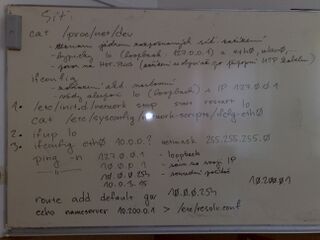 Sítě:
cat /proc/net/dev
- seznam jádrem rozpoznaných síť. zařízení
- typicky lo (loopback, 127.0.0.1) a eth0, wlan0,
- pozor na HOT-PLUG
ifconfig
- vždy alespoň lo (loopback) s IP 127.0.0.1
1. /etc/init.d/network stop start restart lo
cat /etc/sysconfig/network-scripts/ifcfg-eth0
2. ifup lo
3. ifconfig eth0 10.0.0.? netmask 255.255.255.0
ping -n 127.0.0.1 - loopback
10.0.0.1 - sám na svoji IP
10.0.0.254 - sousední počítač
10.0.3.15
10.200.0.1
route add default gw 10.0.0.254
echo nameserver 10.200.0.1 > /etc/resolv.conf